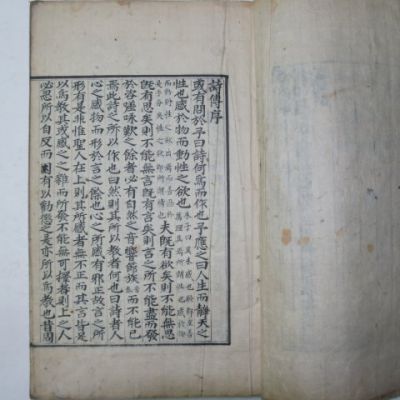 詩傳序
或有問於予曰詩何爲而作也予應之曰人生而靜天之
性也感於物而動性之欲也夫旣有欲矣則不能無思
旣有思矣則不能無言旣有言矣則言之所不能盡而發
於咨嗟咏歎之餘者必有自然之音響節族而不能已
焉此詩之所以作也曰然則其所以敎者何也曰詩者人
心之感物而形於言之餘也心之所感有邪正故言之所
形有是非惟聖人在上則其所感者無不正而其言皆足
以爲敎其或感之之雜而所發不能無可擇者則上之人
必思所以自反而因有以勸懲之是亦所以爲敎也昔周